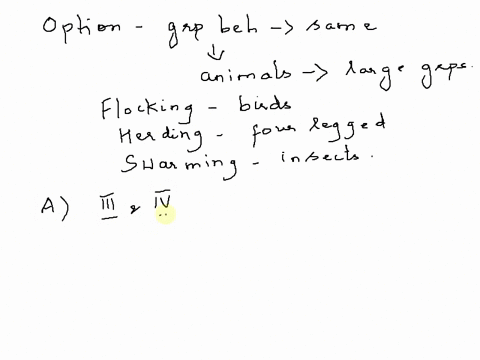 Option - grp beh -> same
↓
animals -> large grps.
Flocking - birds
Herding - four legged
Swarming - insects.
A) III & IV